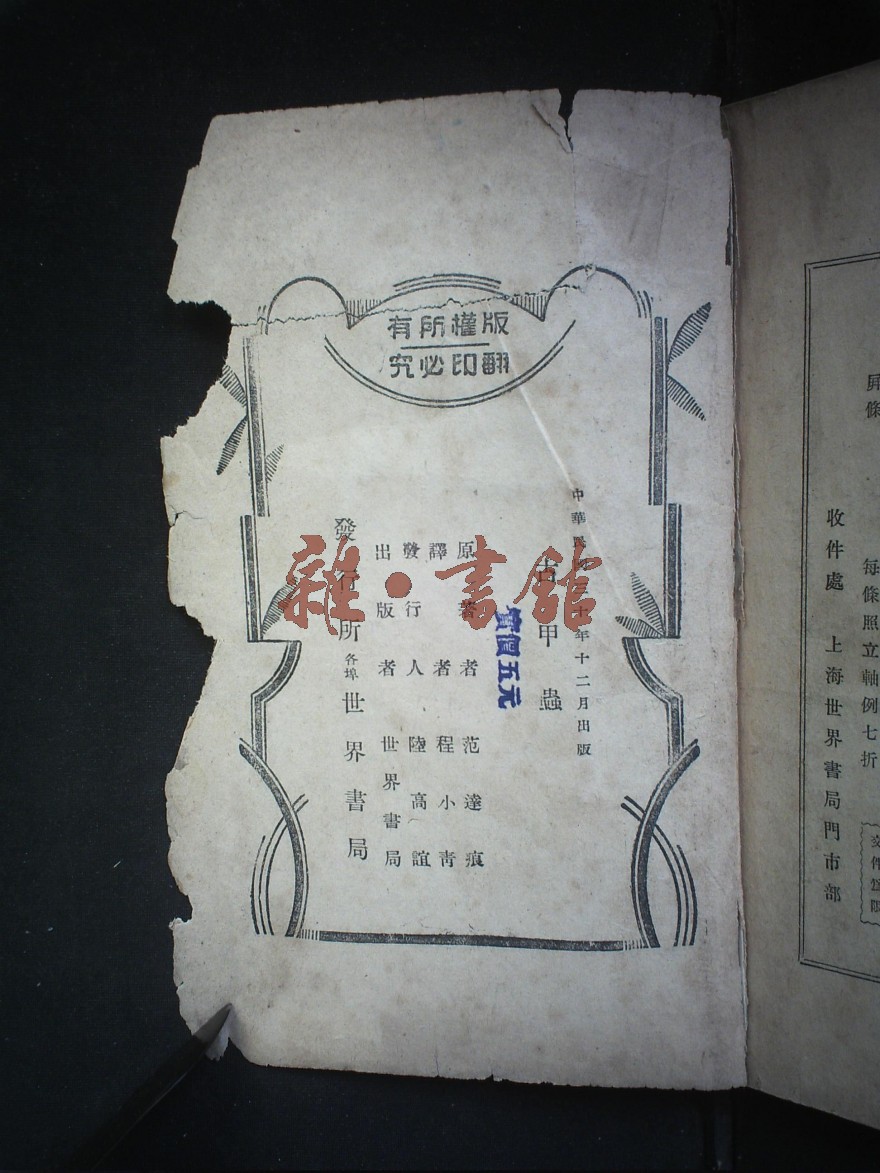 版權所有
翻印必究
中華民國三十年十二月出版
古甲蟲
實價五元
原著者 范達痕
譯者 程小青
發行人 陸高誼
出版者 世界書局
發行所 各埠 世界書局
雜·書館
屏條
每條照立軸例七折
收件處 上海世界書局門市部